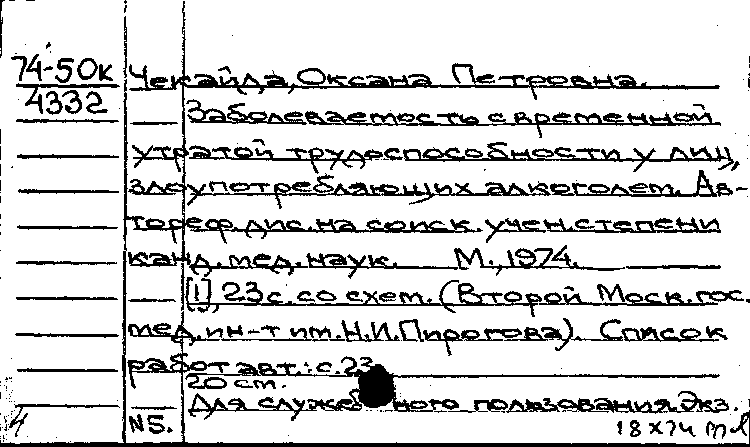 74-50к Чекайда, Оксана Петровна.
4332 Заболеваемость с временной
утратой трудоспособности у лиц,
злоупотребляющих алкоголем. Ав-
тореф. дис. на соиск. учен. степени
канд. мед. наук. М., 1974.
[1], 23 с. со схем. (Второй Моск. гос.
мед. ин-т им. Н.И. Пирогова). Список
работ авт.: с. 23
20 см.
Для служебного пользования. Экз.
N5.